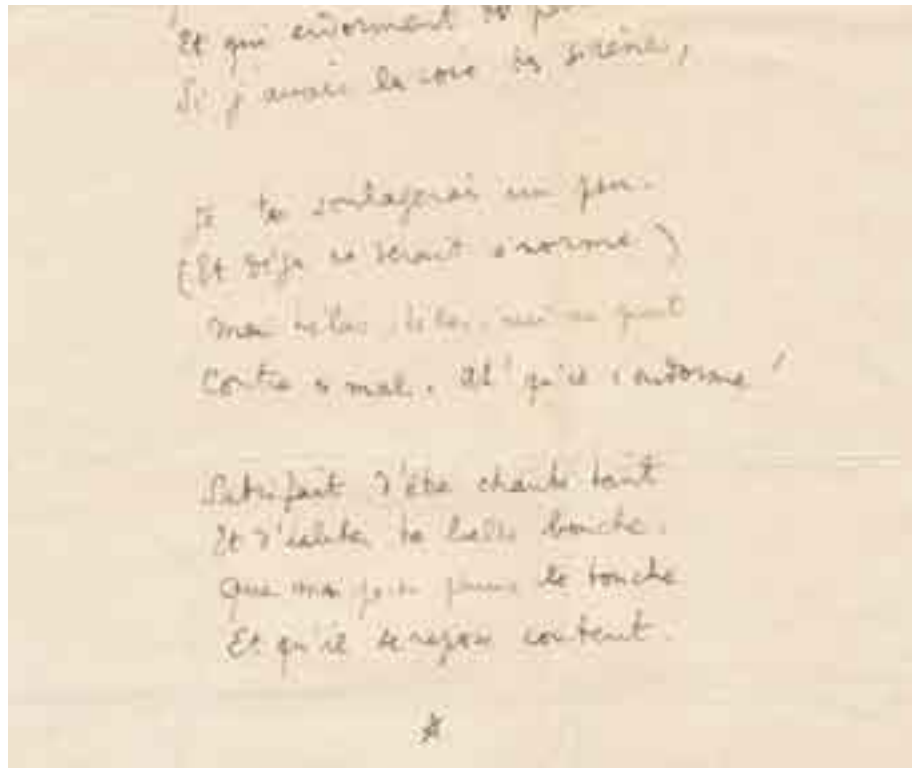 Et qui endorment
Si j'avais la voix des sirènes,
Je te soulagerai un peu.
(Et déjà ce serait énorme)
Mais hélas, hélas, qui ne peut
Contre mal. Ah! qu'il s'endorme!
Satisfait d'être chanté tant
Et d'habiter ta belle bouche.
Que mon te touche
Et qu'il content.